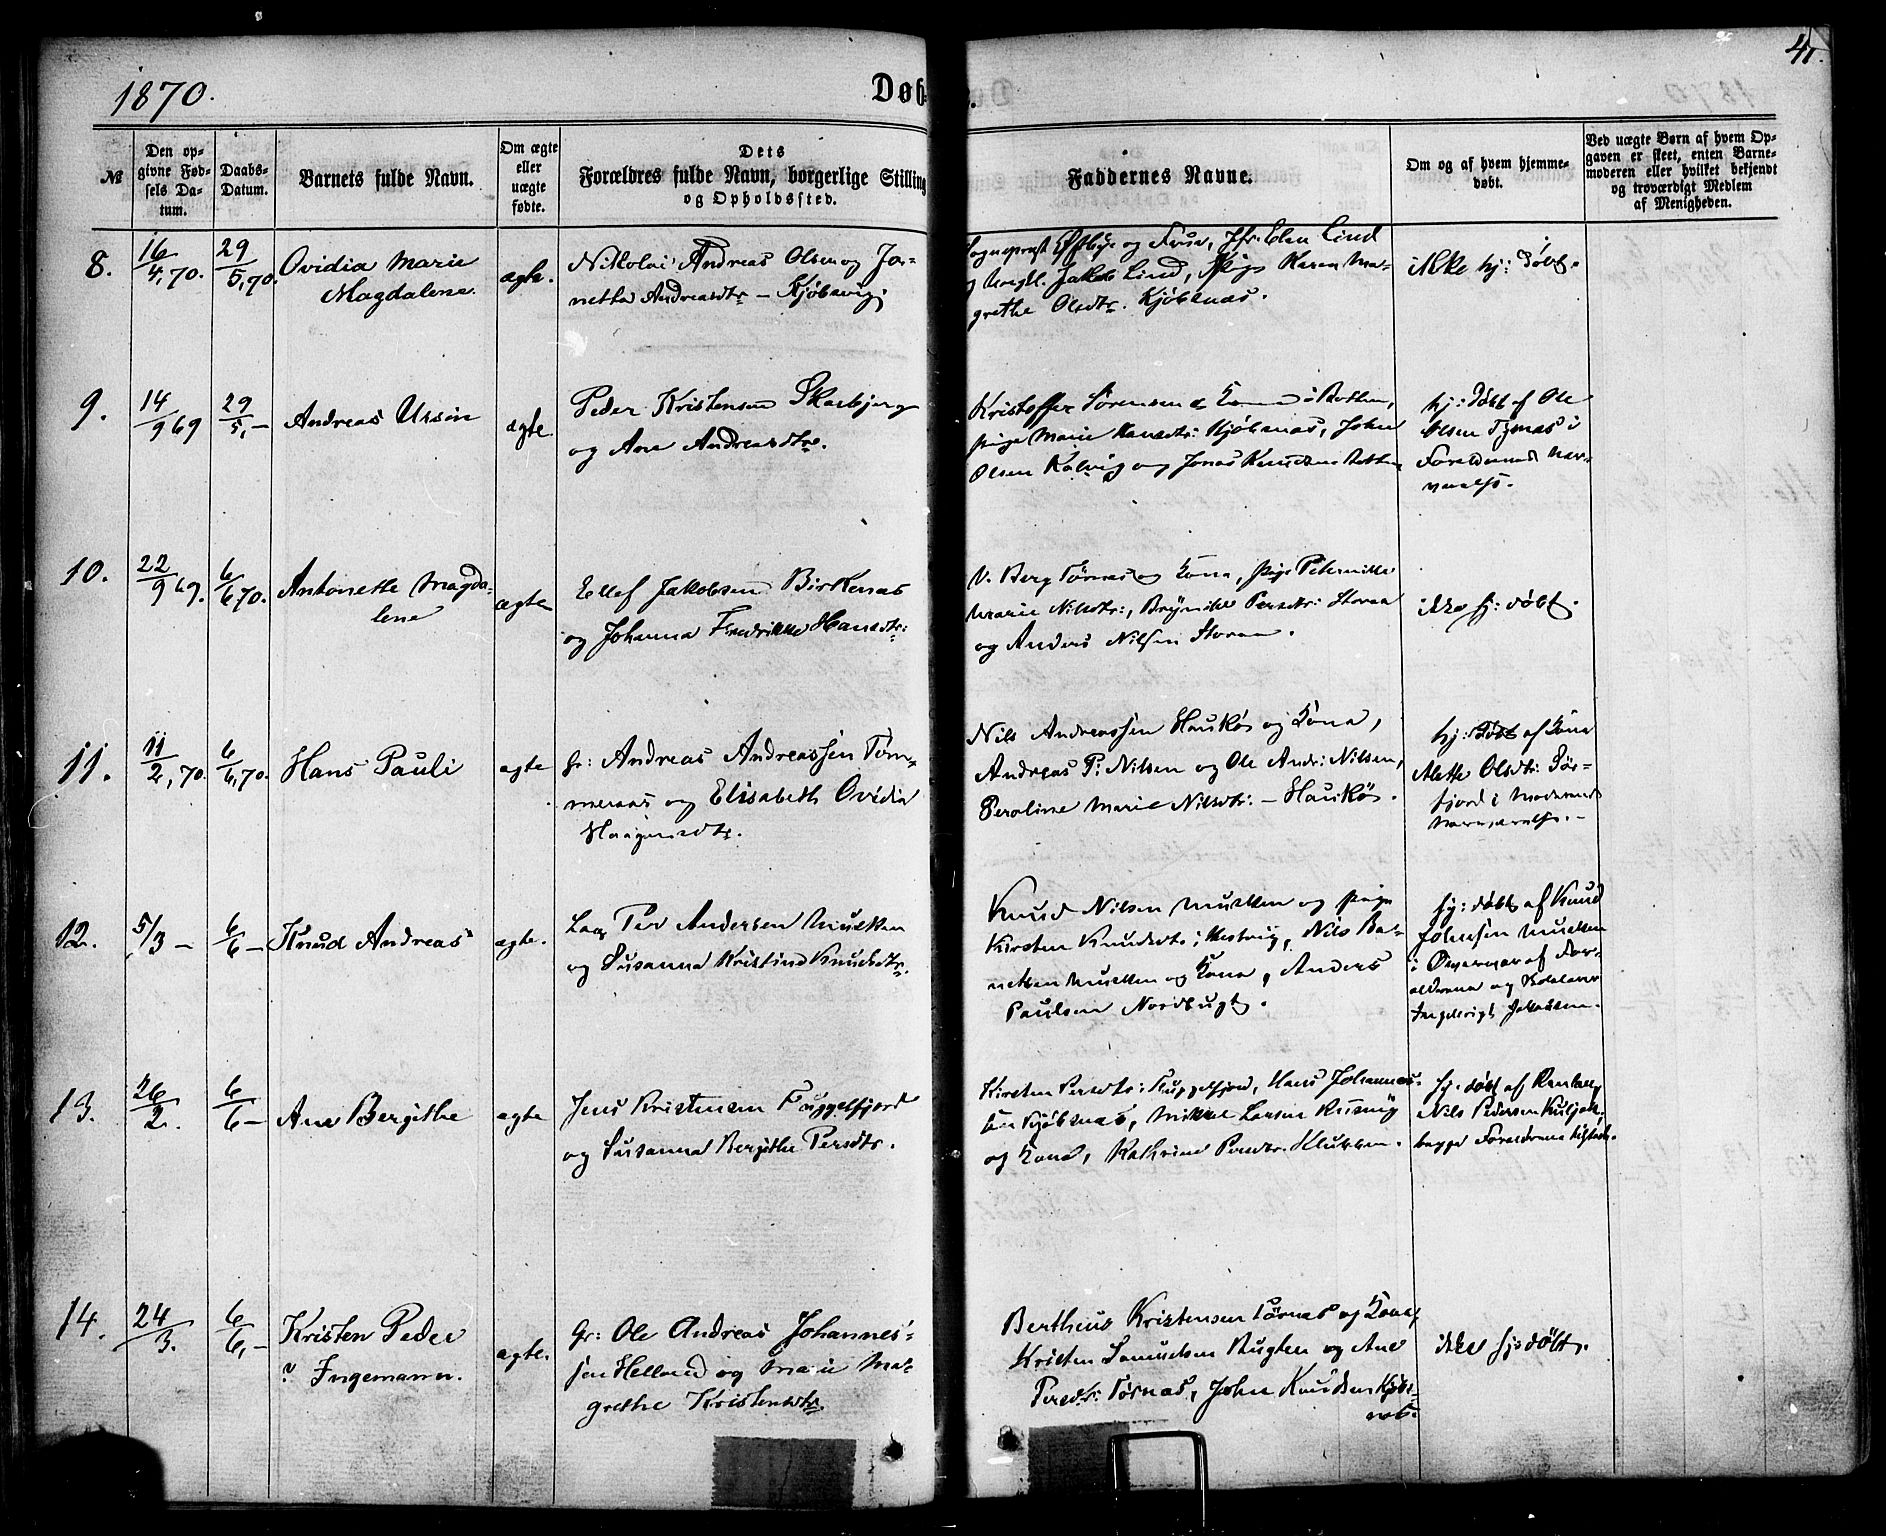 1870.
Døb
41.
№
Den op-
givne Fød-
sels Da-
tum.
Daabs-
Datum.
Barnets fulde Navn.
Om ægte
eller
uægte
fødte.
Dets
Forældres fulde Navn, borgerlige Stilling
og Opholdssted.
Faddernes Navne.
Om og af hvem hjemme-
døbt.
Ved uægte Børn af hvem Op-
gaven er skeet, enten Barne-
moderen eller hvilket bekjendt
og troværdigt Medlem
af Menigheden.
8.
16/4,70.
29/5,70.
Ovidia Marie
Magdalene.
ægte.
Nikolai Andreas Olsen og Jor-
netta Andreasdtr. - Kjøbsvig;
Sogneprest Østbye og Frue, Jfr. Elen Lind
og Jakob Lind, Pige Karen Ma-
grethe Olsdtr. Kjøbsnæs.
ikke hj: døbt.
9.
14/9 69
29/5,-
Andreas Ursin
ægte
Peder Kristensen Skarbjerg
og Ane Andreasdtr.
Kristoffer Sørensen & Kona i Botten,
Pige Marie Hansdtr: Kjøbsnæs, John
Olsen Kalvig og Jonas Knudsen Botten
hj: døbt af Ole
Olsen i
Forældrenes Nær-
værelse.
10.
22/9 69.
6/6 70.
Antonette Magda-
lene
ægte
Ellef Jakobsen Birkenæs
og Johanna Fredrikke Hansdtr:
V. Berg Tørnæs og Kona, Pige Peternille
Marie Nilsdtr:, Persdtr: Storaa
og Anders Nilsen Storaa.
ikke hj: døbt.
11.
11/2,70.
6/6,70.
Hans Pauli
ægte
Gr: Andreas Andreassen Tøm-
meraas og Elisabeth Ovidia
Haagensdtr.
Nils Andreassen Haukøs og Kona,
Andreas P: Nilsen og Ole Andr: Nilsen,
Peroline Marie Nilsdtr: - Haukøs.
hj: døbt af Kona
Alette Olsdtr: Sør-
fjord i Moderens
Nærværelse. -
12.
5/3 -
6/6 -
Knud Andreas
ægte.
Per Andersen Muelken
og Susanna Kristine Knudsdtr.
Knud Nilsen Muelken og Pige
Kirsten Knudsdtr:, Nils Ba-
Muelken og Kona, Anders
Paulsen Nordbugt.
hj: døbt af Knud
Johnsen Muelken
i Overvær af For-
ældrene og
Jakobsen.
13.
26/2.
6/6 -
Ane Bergithe
ægte
Jens Kristensen Fuggelfjord
og Susanna Bergithe Persdtr.
Kirsten Persdtr: Fuggelfjord, Hans Johannes-
sen Kjøbsnæs, Mikkel Larsen
og Kona, Kathrine Pedersdtr. Klubben.
hj. døbt af
Nils Pedersen
begge Forældrene
14.
24/3.
6/6,-
Kristen Peder
? Ingemann.
ægte.
Gr: Ole Andreas Johannes-
sen Helland og Marie Ma-
grethe Kristensdtr.
Bertheus Kristensen Tørnæs og Kona,
Kristen Samuelsen Bugten og Ane
Persdtr: Tørnæs, John Knudsen Kjøbs-
næs.
ikke hj: døbt.